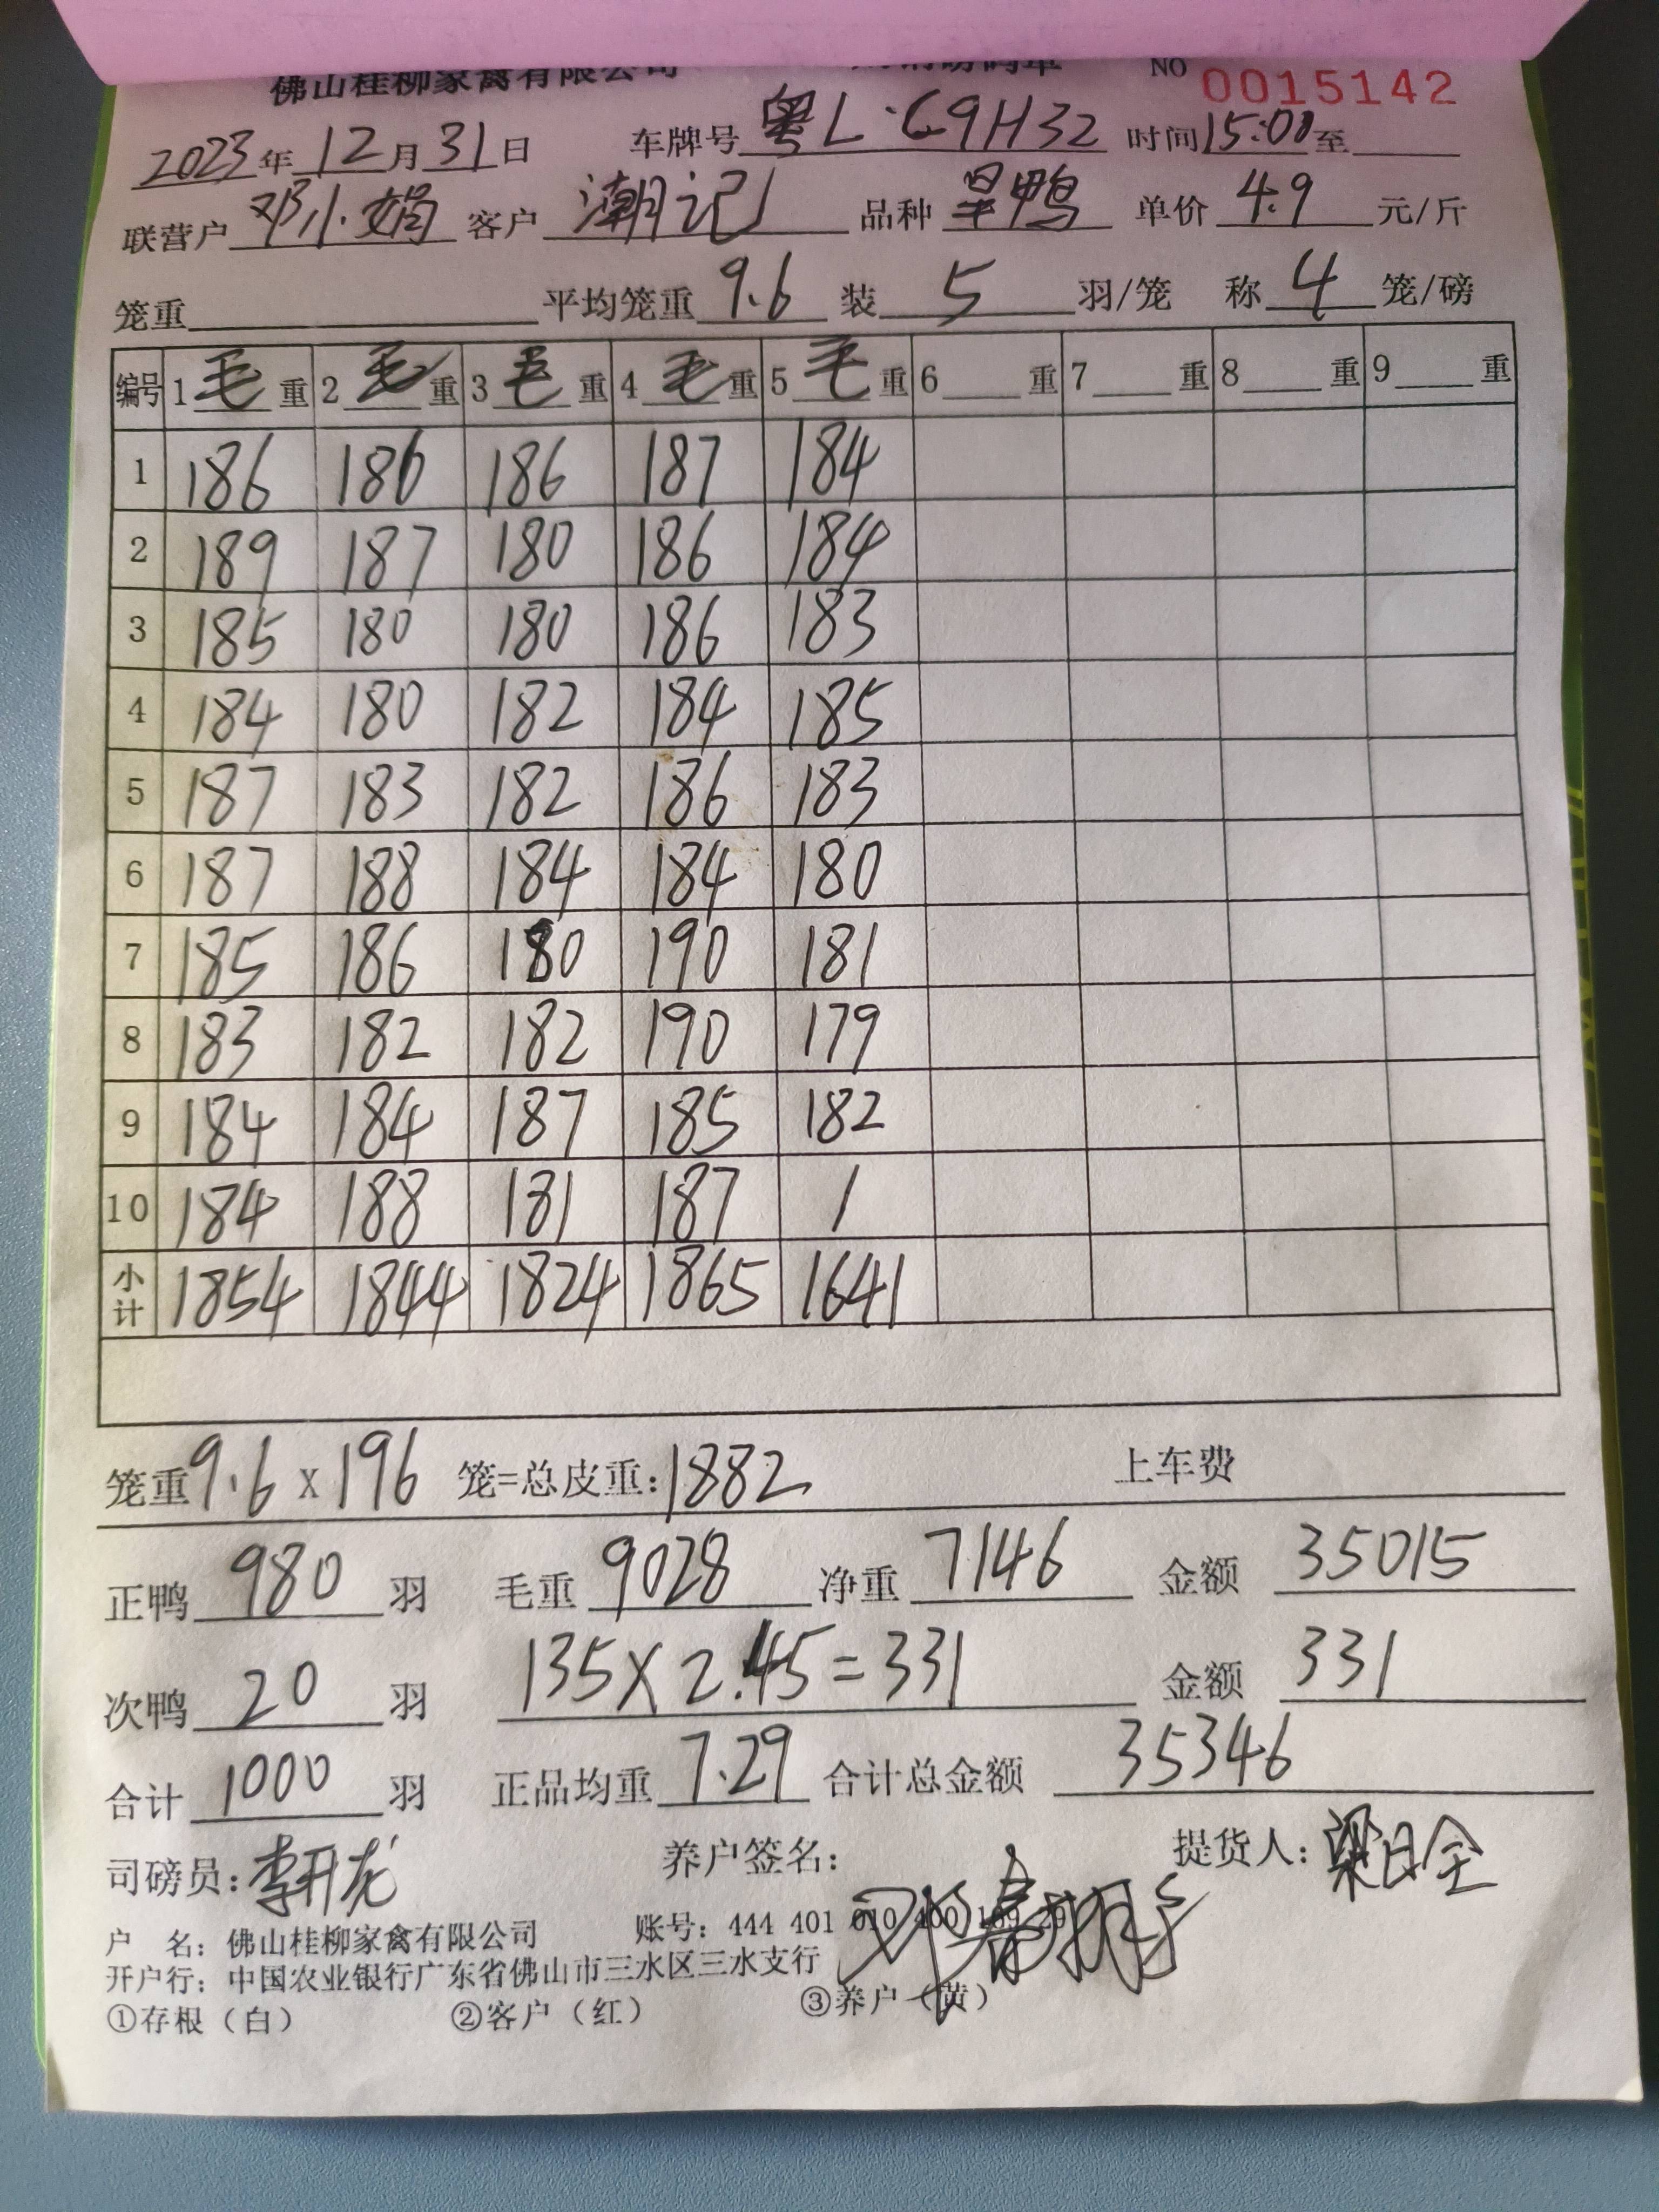 佛山桂柳家禽有限公司 NO 0015142
2023年12月31日 车牌号 粤L·C9H32 时间15:00至
联营户 邓小娟 客户 潮记 品种 旱鸭 单价 4.9 元/斤
笼重 平均笼重 9.6 装 5 羽/笼 称 4 笼/磅
编号 1 毛 重 2 毛 重 3 毛 重 4 毛 重 5 毛 重 6 重 7 重 8 重 9 重
1 186 186 186 187 184
2 189 187 180 186 184
3 185 180 180 186 183
4 184 180 182 184 185
5 187 183 182 186 183
6 187 188 184 184 180
7 185 186 180 190 181
8 183 182 182 190 179
9 184 184 187 185 182
10 184 188 181 187 /
小计 1854 1844 1824 1865 1641
笼重 9.6 x 196 笼=总皮重: 1882 上车费
正鸭 980 羽 毛重 9028 净重 7146 金额 35015
次鸭 20 羽 135×2.45=331 金额 331
合计 1000 羽 正品均重 7.29 合计总金额 35346
司磅员: 李开龙 养户签名: 提货人: 梁日全
户 名: 佛山桂柳家禽有限公司 账号: 444 401 010 400 169 29
开户行: 中国农业银行广东省佛山市三水区三水支行
①存根（白） ②客户（红） ③养户（黄）